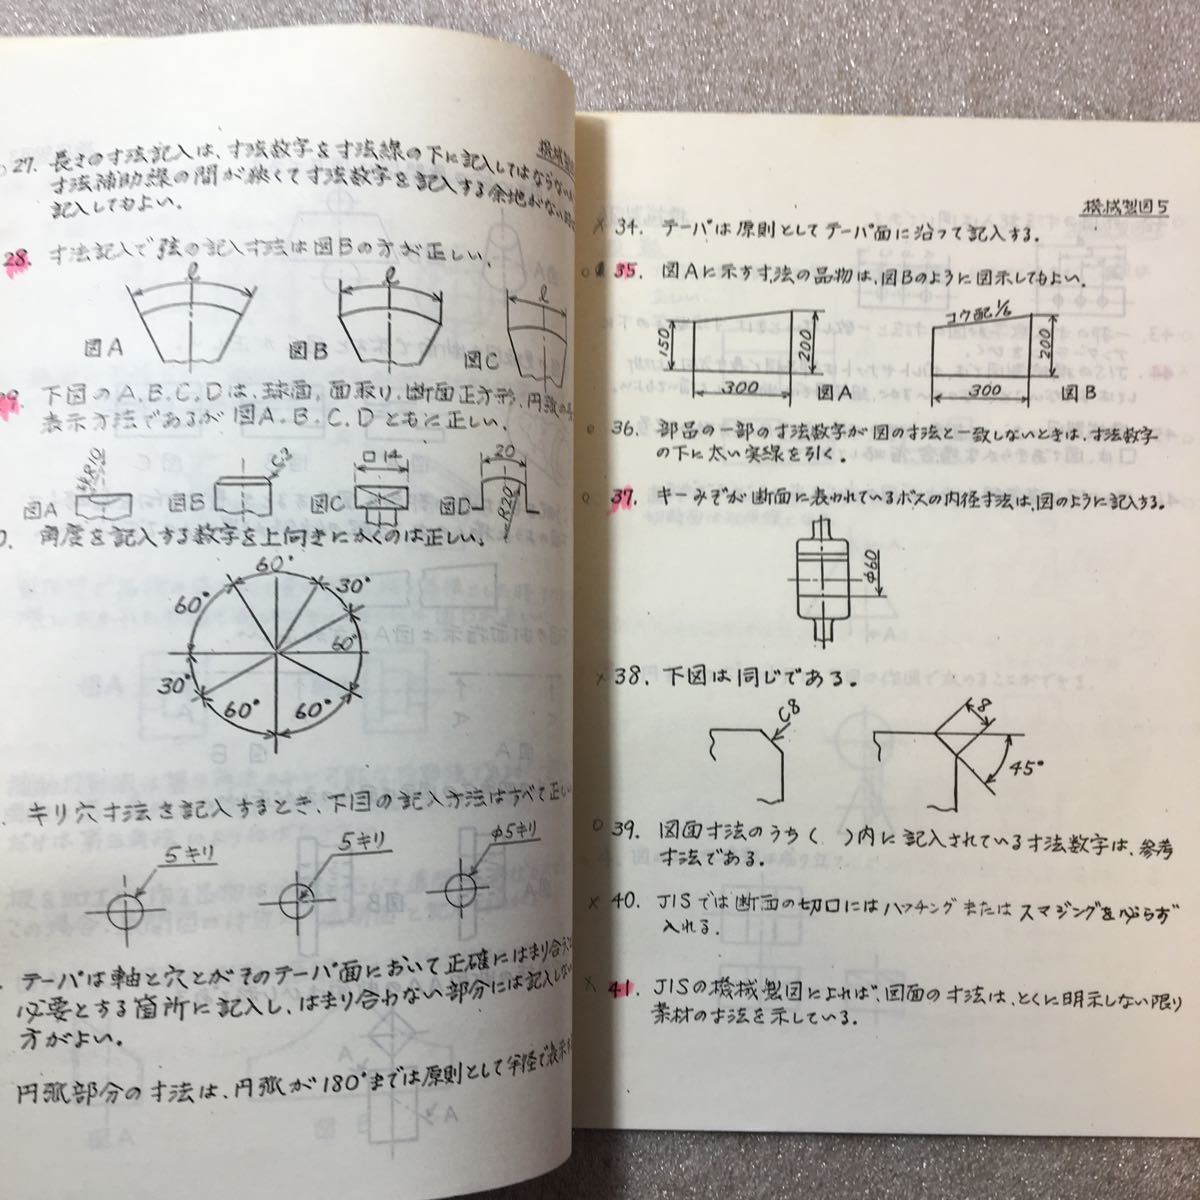 機械製図
27. 長さの寸法記入は、寸法数字を寸法線の下に記入してはならない
寸法補助線の間が狭くて寸法数字を記入する余地がない
記入してもよい。
28. 寸法記入で弦の記入寸法は図Bの方が正しい。
l
l
l
図A
図B
図C
下図のA.B.C.Dは、球面、面取り、断面正方形、円弧の
表示方法であるが図A.B.C.Dともに正しい。
C3
□14
20
図A
図B
図C
図D
角度を記入する数字を上向きにかくのは正しい。
60°
60°
30°
60°
30°
60°
60°
キリ穴寸法を記入するとき、下図の記入方法はすべて正し
5キリ
5キリ
φ5キリ
テーパは軸と穴とがそのテーパ面において正確にはまり合う
必要とする箇所に記入し、はまり合わない部分には記入しない
方がよい。
円弧部分の寸法は、円弧が180°までは原則として半径で表示
機械製図5
× 34. テーパは原則としてテーパ面に沿って記入する。
○ 35. 図Aに示す寸法の品物は、図Bのように図示してもよい。
コウ配1/6
150
200
200
300
図A
300
図B
○ 36. 部品の一部の寸法数字が図の寸法と一致しないときは、寸法数字
の下に太い実線を引く。
○ 37. キーみぞが断面に表われているボスの内径寸法は、図のように記入する。
φ60
× 38. 下図は同じである。
C8
8
45°
○ 39. 図面寸法のうち( )内に記入されている寸法数字は、参考
寸法である。
× 40. JISでは断面の切口にはハッチングまたはスマジングを必らず
入れる。
× 41. JISの機械製図によれば、図面の寸法は、とくに明示しない限り
素材の寸法を示している。